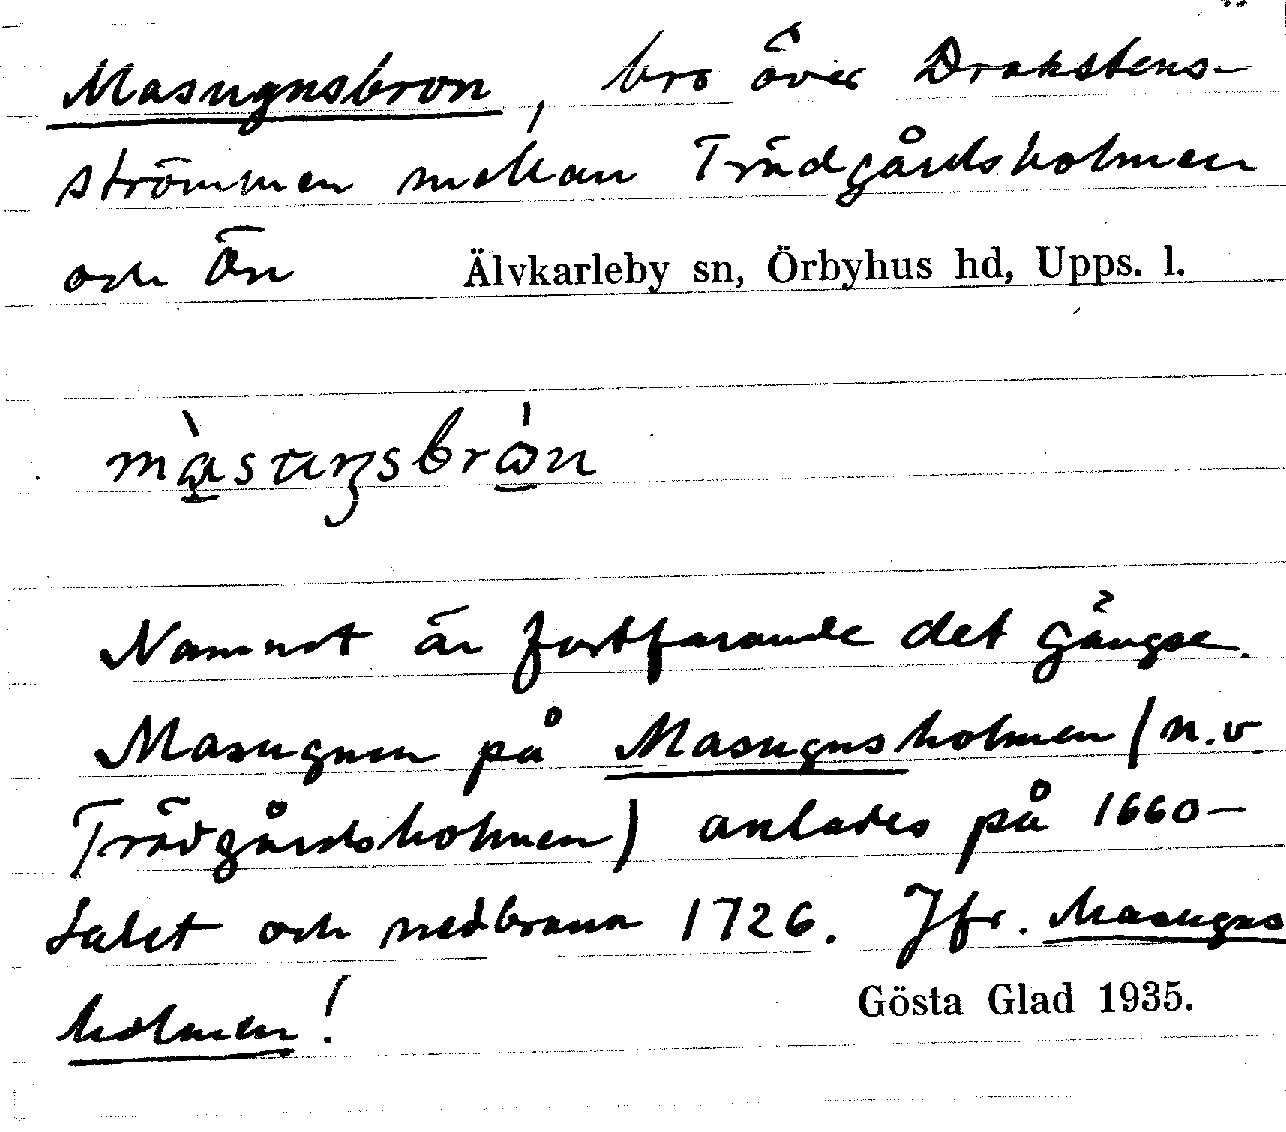 Masugnsbron, bro över Drakstens-
strömmen mellan Trädgårdsholmen
och Ön Älvkarleby sn, Örbyhus hd, Upps. l.
Namnet är fortfarande det gängse.
Masugnen på Masugnsholmen (n.v.
Trädgårdsholmen) anlades på 1660-
talet och nedbrann 1726. Jfr. Masugns
holmen!
Gösta Glad 1935.